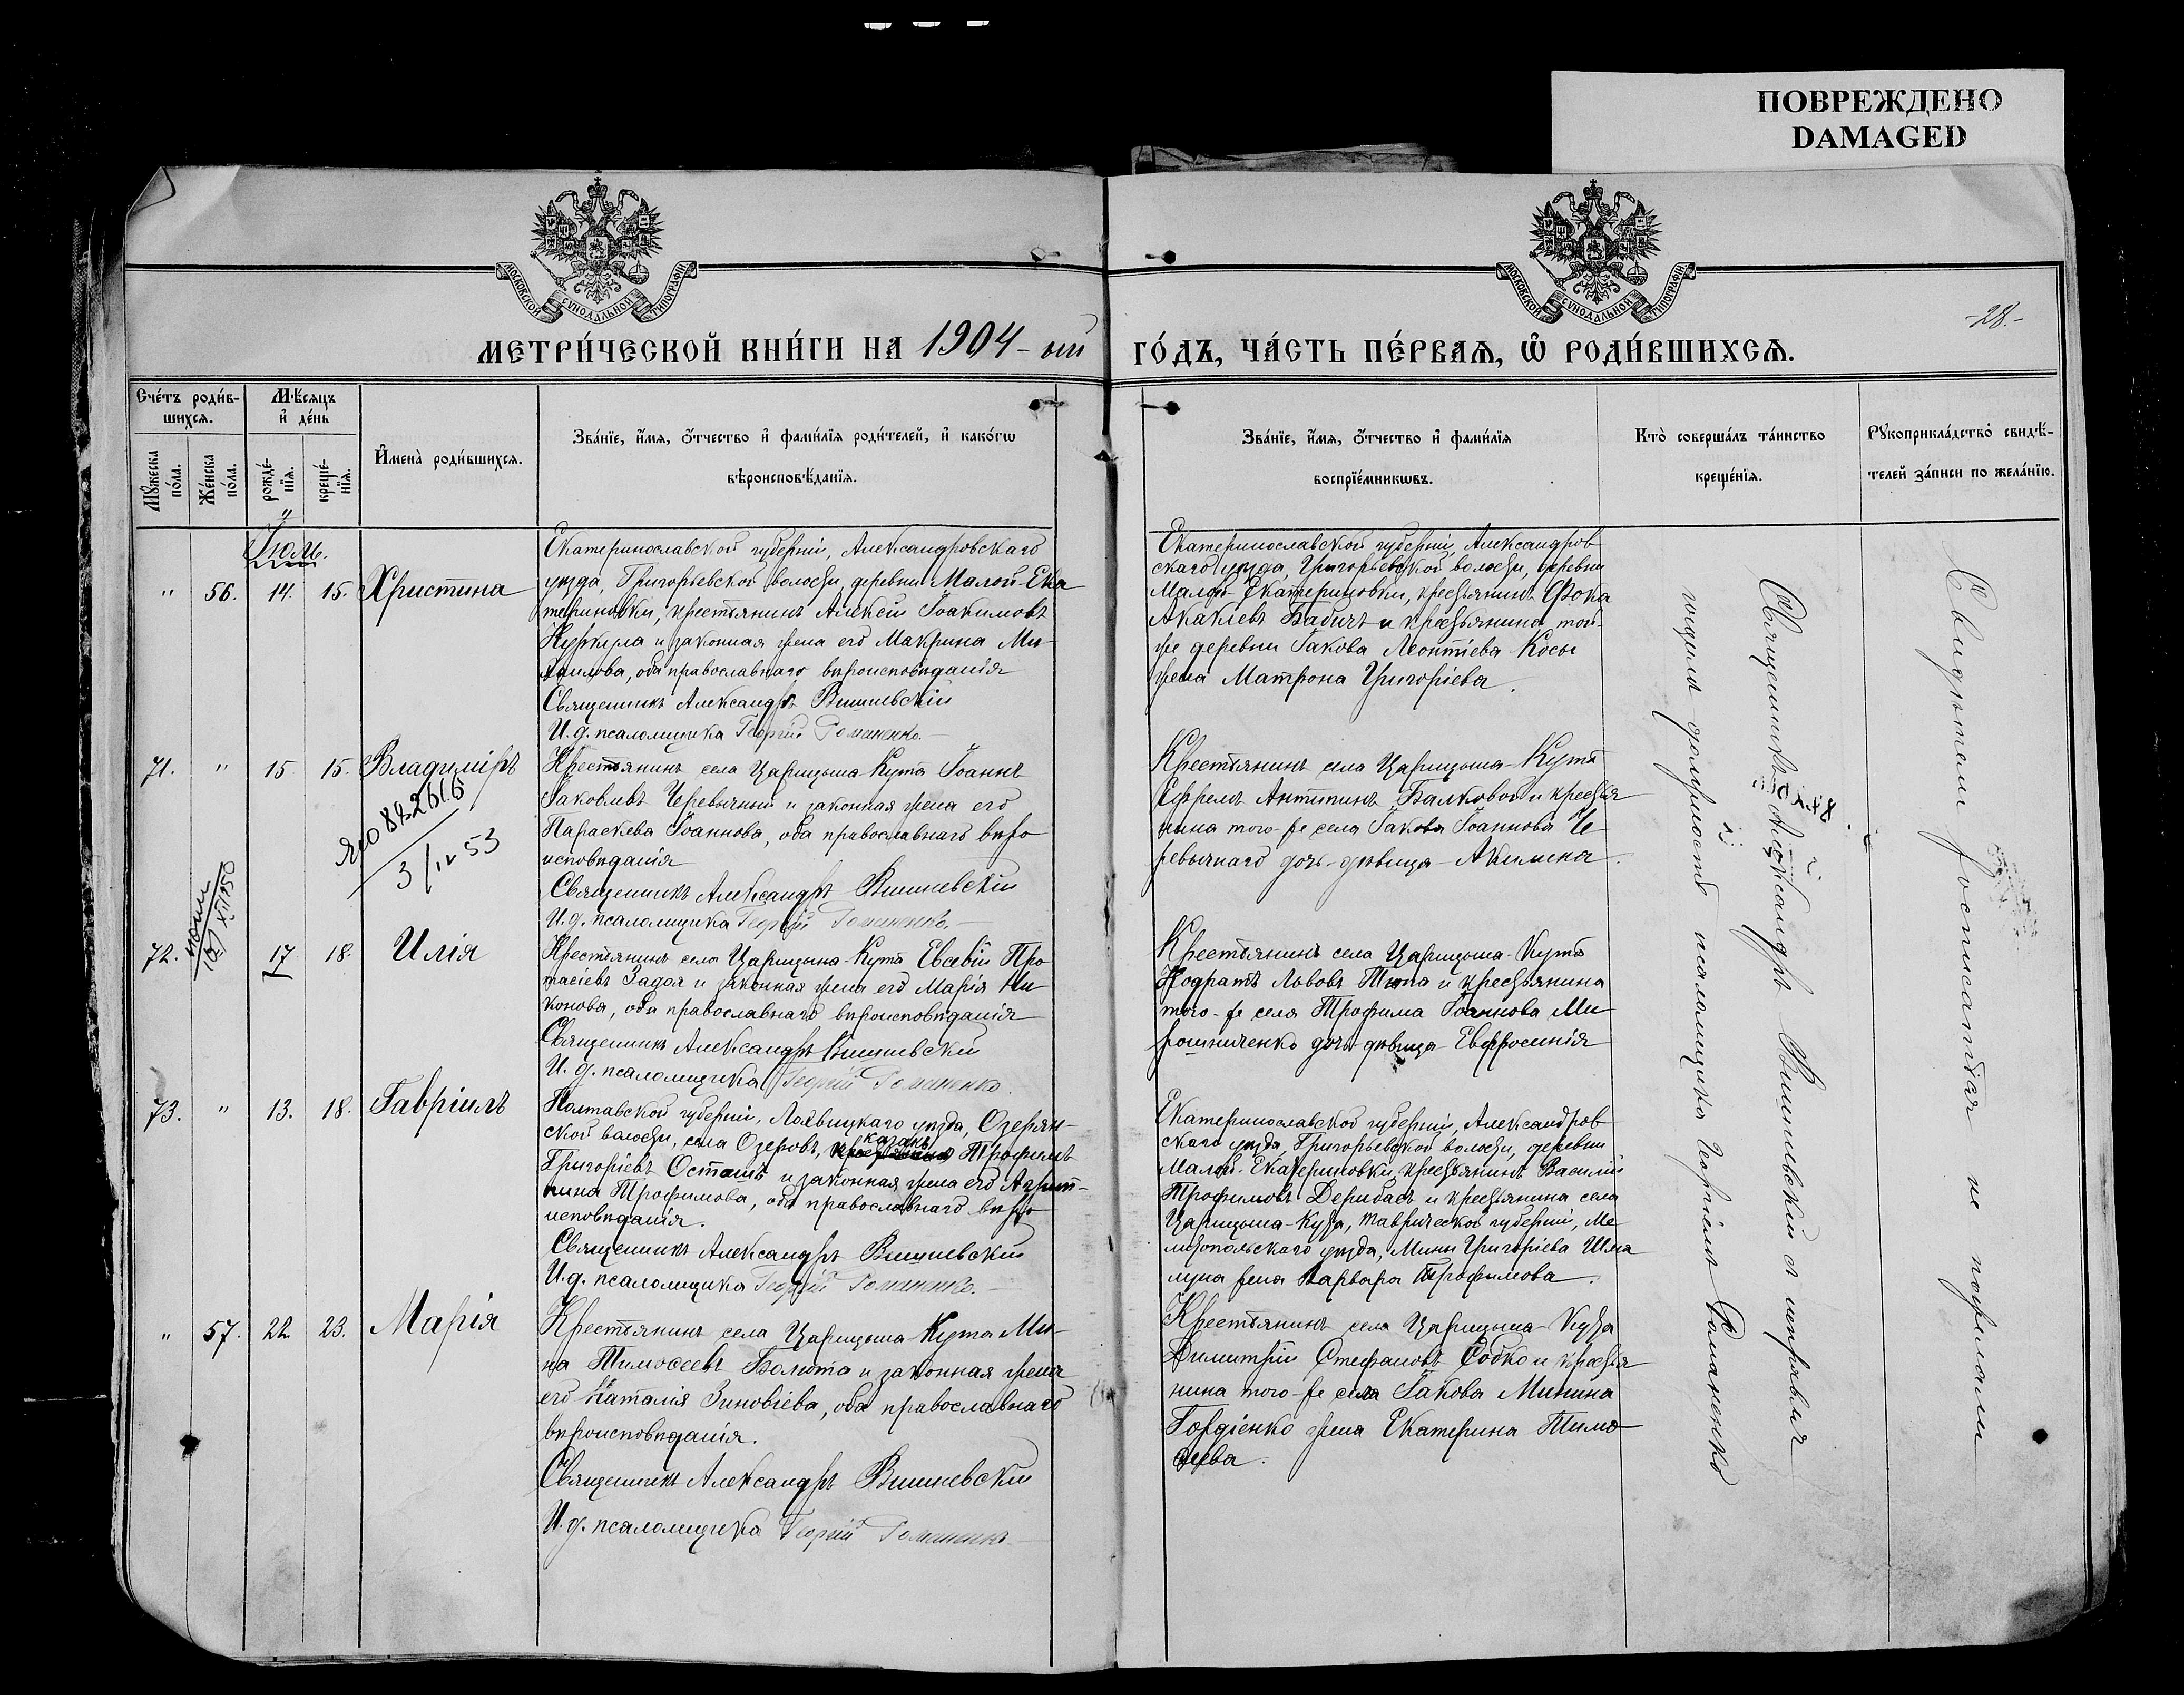 ПОВРЕЖДЕНО
DAMAGED
МОСКОВСКОЙ СѴНОДАЛЬНОЙ ТИПОГРАФІИ
МОСКОВСКОЙ СѴНОДАЛЬНОЙ ТИПОГРАФІИ
-28.-
МЕТРИ́ЧЕСКОЙ КНИ́ГИ НА 1904-ый ГО́ДЪ, ЧА́СТЬ ПЕ́РВАѦ, Ѡ҆ РОДИ́ВШИХСѦ.
Сче́тъ роди́в-
шихсѧ.
Мꙋ́жеска по́ла.
Же́нска по́ла.
Мѣ́сѧцъ
и҆ де́нь
рожде́-
нїѧ.
креще́-
нїѧ.
И҆мена̀ роди́вшихсѧ.
Зва́нїе, и҆́мѧ, ѻ҆́тчество и҆ фами́лїѧ роди́телей, и҆ како́гѡ
вѣроисповѣ́данїѧ.
Зва́нїе, и҆́мѧ, ѻ҆́тчество и҆ фами́лїѧ
воспрїе́мникѡвъ.
Кто̀ соверша́лъ та́инство
креще́нїѧ.
Рꙋкоприкла́дство свидѣ́-
телей за́писи по жела́нїю.
Іюль.
" 56. 14. 15. Христина
Екатеринославской губерніи, Александровскаго
уѣзда, Григорьевской волости, деревни Малой-Ека
териновки, крестьянинъ Алексѣй Іоакимовъ
и законная жена его Макрина Ми-
хаилова, оба православнаго вѣроисповѣданія
Священникъ Александръ Вишневскій
И.д. псаломщика Георгій Романенко.
Екатеринославской губерніи, Александров
скаго уѣзда Григорьевской волости, деревни
Малой-Екатериновки, крестьянинъ Фока
Акакіевъ Бабичъ и крестьянина той-
же деревни Іакова Леонтіева Косы
жена Матрона Григоріева.
71. " 15 15. Владиміръ
ЯЮ 842616
3/IV 53
Крестьянинъ села Царицына-Кута Іоаннъ
Іаковлевъ Черевычный и законная жена его
Параскева Іоаннова, оба православнаго вѣро
исповѣданія
Священникъ Александръ Вишневскій
И.д. псаломщика Георгій Романенко.
Крестьянинъ села Царицына-Кута
Ефремъ Антипинъ Балковой и крестья
нина того-же села Іакова Іоаннова Че
ревычнаго дочь-дѣвица Акилина.
72. 17 18. Илія
XII 1950
Крестьянинъ села Царицына-Кута Евсевій Про
тасіевъ Задоя и законная жена его Марія Ни
конова, оба православнаго вѣроисповѣданія
Священникъ Александръ Вишневскій
И.д. псаломщика Георгій Романенко.
Крестьянинъ села Царицына-Кута
Кодратъ Львовъ Тюпа и крестьянина
того-же села Трофима Іоаннова Ми
рошниченко дочь-дѣвица Евфросинія
73. " 13. 18. Гавріилъ
Полтавской губерніи, Лохвицкаго уѣзда, Озерян-
ской волости, села Озеровъ, казакъ Трофимъ
Григоріевъ Осташъ и законная жена его Агрип-
пина Трофимова, оба православнаго вѣро
исповѣданія.
Священникъ Александръ Вишневскій
И.д. псаломщика Георгій Романенко.
Екатеринославской губерніи, Александров
скаго уѣзда, Григорьевской волости, деревни
Малой-Екатериновки, крестьянинъ Василій
Трофимовъ Дерибасъ и крестьянина села
Царицына-Кута, Таврической губерніи, Ме
литопольскаго уѣзда, Мины Григоріева
жена Варвара Трофимова.
" 57. 22 23. Марія
Крестьянинъ села Царицына-Кута Ми-
на Тимоѳеевъ Болюта и законная жена
его Наталія Зиновіева, оба православнаго
вѣроисповѣданія.
Священникъ Александръ Вишневскій
И.д. псаломщика Георгій Романенко.
Крестьянинъ села Царицына-Кута
Димитрій Стефановъ Собко и крестья
нина того-же села Іакова Минина
Гордіенко жена Екатерина Тимо
ѳеева.
Священникъ Александръ Вишневскій съ исправля
ющимъ должность псаломщика Георгіемъ Романенко
Свидѣтели росписаться не пожелали